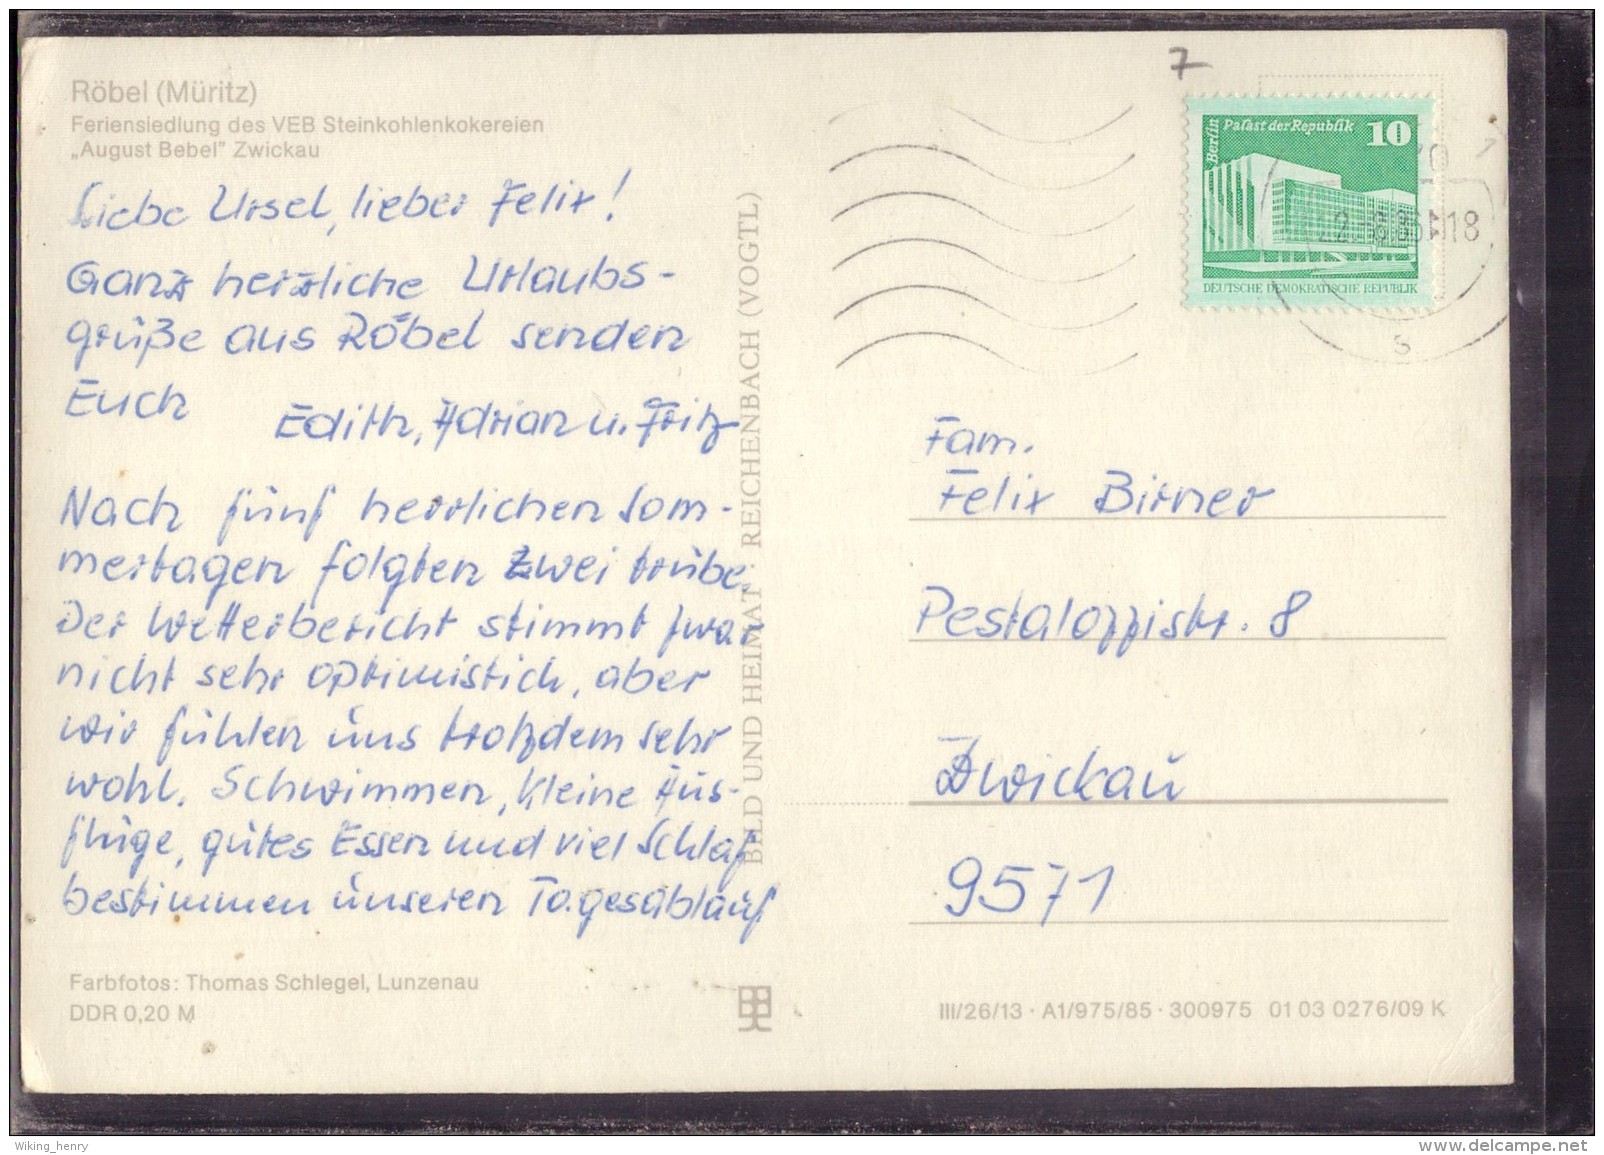 Röbel (Müritz)
Feriensiedlung des VEB Steinkohlenkokereien
„August Bebel" Zwickau
Liebe Ursel, lieber Felix!
Ganz herzliche Urlaubs-
grüße aus Röbel senden
Euch
Edith, Adrian u. Fritz
Nach fünf herrlichen Som-
mertagen folgten zwei trübe.
Der Wetterbericht stimmt zwar
nicht sehr optimistich, aber
wir fühlen uns trotzdem sehr
wohl. Schwimmen, kleine Aus-
flüge, gutes Essen und viel Schlaf
bestimmen unseren Tagesablauf
Farbfotos: Thomas Schlegel, Lunzenau
DDR 0,20 M
BILD UND HEIMAT REICHENBACH (VOGTL)
7
Berlin
Palast der Republik 10
DEUTSCHE DEMOKRATISCHE REPUBLIK
18
s
Fam.
Felix Birner
Pestalozzistr. 8
Zwickau
9571
III/26/13 · A1/975/85 · 300975 01 03 0276/09 K
Wiking_henry
www.delcampe.net